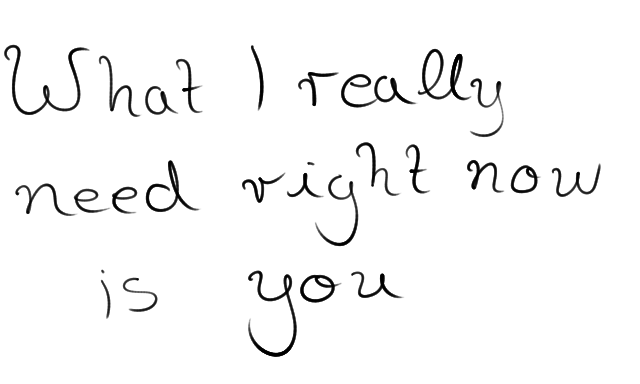 What I really
need right now
is you